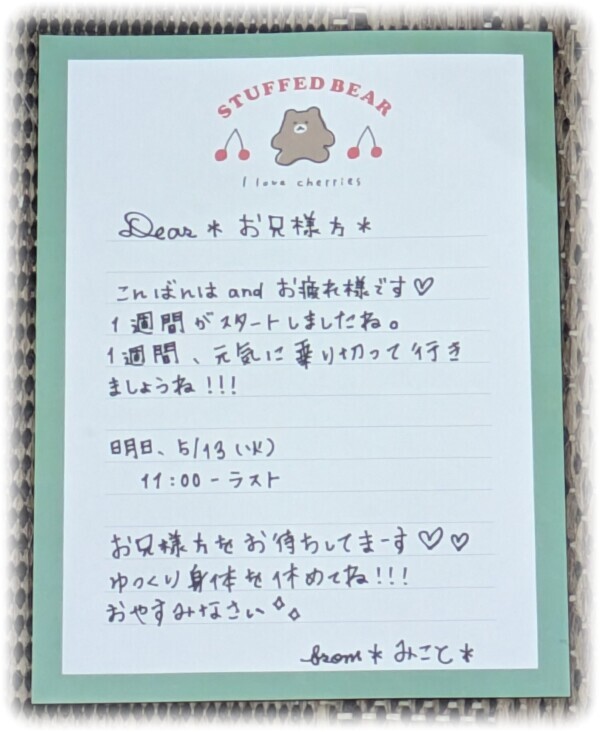 STUFFED BEAR
I love cherries
Dear＊お兄様方＊
こんばんは and お疲れ様です♡
1週間がスタートしましたね。
1週間、元気に乗り切って行き
ましょうね!!!
明日、5/13(火)
11:00-ラスト
お兄様方をお待ちしてまーす♡♡
ゆっくり身体を休めてね!!!
おやすみなさい✧✧
from＊みこと＊